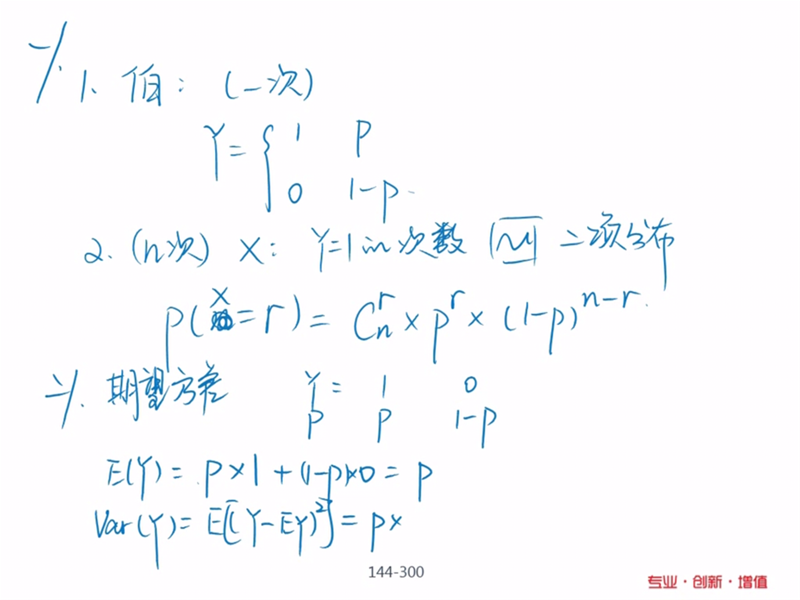 一、1、伯：（一次）
Y = { 1 p
0 1-p
2.（n次）X：Y=1的次数 ~ 二项分布
P(X=r) = C_n^r × p^r × (1-p)^{n-r}
二、期望方差 Y = 1 0
P p 1-p
E(Y) = p×1 + (1-p)×0 = p
Var(Y) = E[(Y-EY)^2] = p×
144-300
专业·创新·增值